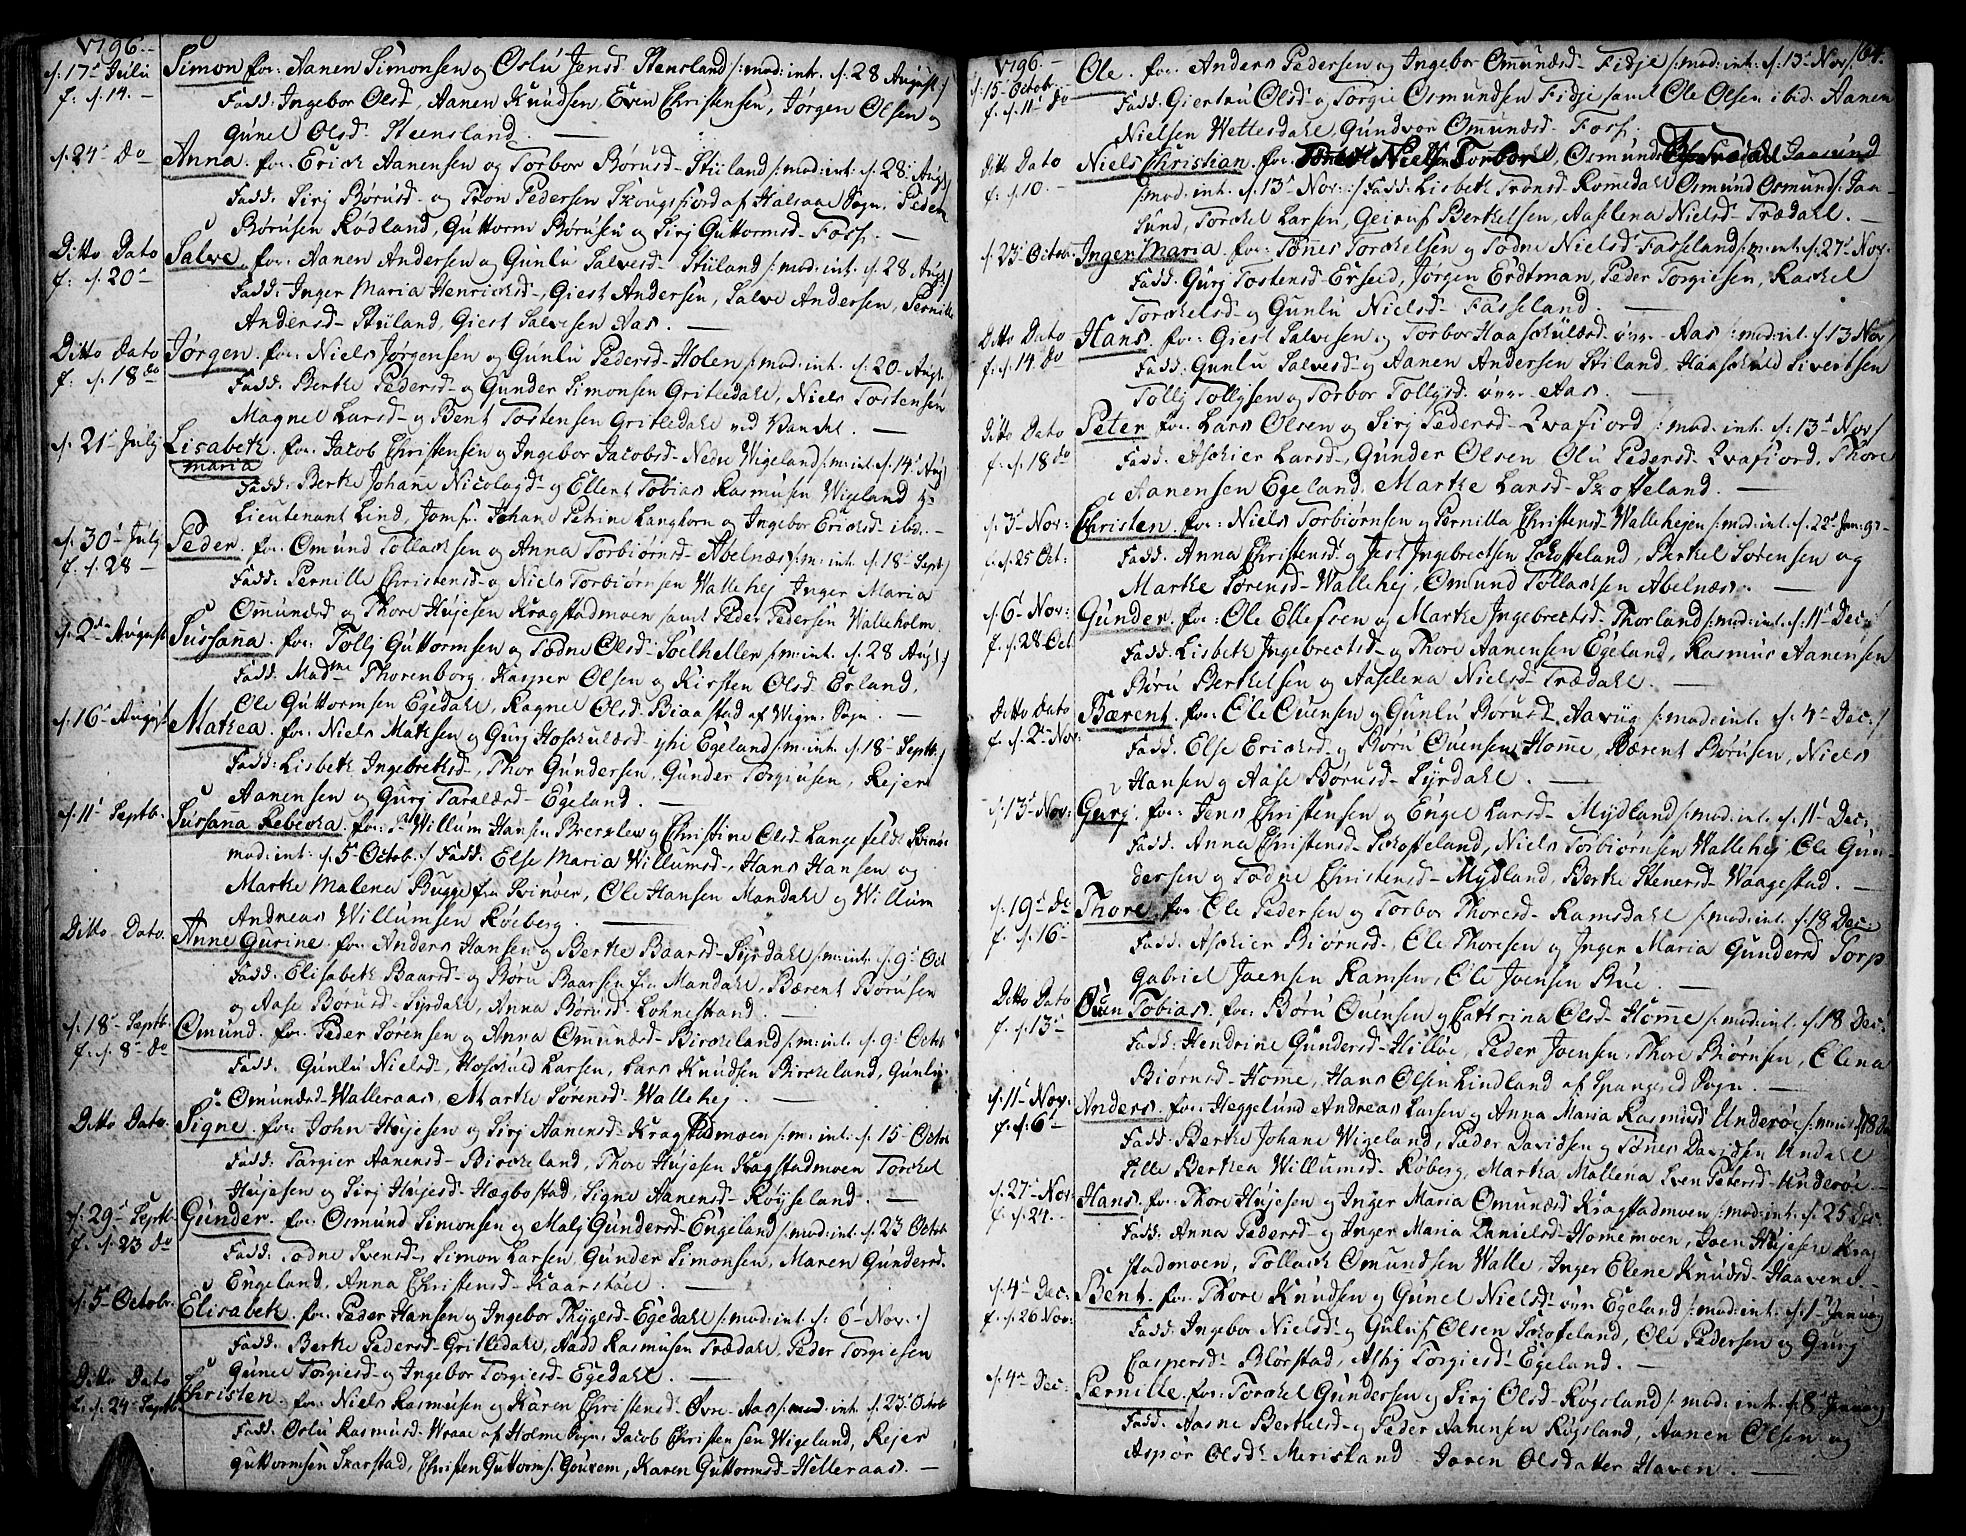 1796.
d: 17d Julii Simon for: Aanen Simonsen og Oslu Jensd- Stensland /: mod: int. d: 28 August :/
f: d: 14. - Fadd: Ingebor Olsd, Aanen Knudsen, Even Christensen, Jørgen Olsen og
Gunel Olsd- Steensland. -
d: 24d do Anna. for: Erich Aanensen og Torbor Børusd- Stiland /: mod: int. d: 28 Aug:/
Fadd: Sirj Børusd- og Thon Pedersen Skougsfiord af Halsaae Sogn. Peder
Børusen Rødland, Guttorm Børusen og Sirj Guttormsd- Foss. -
Ditto Dato Salve. for: Aanen Andersen og Gunlu Salvesd- Stiland /: mod: int. d: 28 Aug:/
f: d: 20d Fadd: Inger Maria Henrichsd-, Giest Andersen, Salve Andersen, Pernille
Andersd- Stiland, Giest Salvesen Aas. -
Ditto Dato Jørgen. for: Niels Jørgensen og Gunlu Pedersd- Holen /: mod: int. d: 20 Aug:
f: d: 18 do Fadd: Berthe Pedersd- og Gunder Simonsen Gritledahl, Niels Tostensen
Magnel Larsd- og Bent Tostensen Gritledahl ved Mandal. -
d: 21d Julj Lisabeth for: Jacob Christensen og Ingebor Jacobsd- Nedre Wigeland /: m: int. d: 14d Aug:/
Maria
Fadd: Berthe Johane Nicolasd- og Ellert Tobias Rasmusen Wigeland
Lieutenant Lind, Jomfr. Johane Petrine Langhorn og Ingebor Erichsd- ibd. -
d: 30d Julj Peder. for: Omund Tollachsen og Anna Torbiørnsd- Abelnæs /: m: int. d: 18d Sept:/
f: d: 28 - Fadd: Pernille Christensd- og Niels Torbiørnsen Wallehej Inger Maria
Omundsd og Thore Hujesen Kragstadmoen samt Peder Pedersen Walleholm
d: 2den August Sussana. for: Tollj Guttormsen og Todne Olsd- Soelhelleren /: m: int. d: 28 Aug:/
Fadd: Madme Thorenborg, Kasper Olsen og Kirsten Olsd- Erland,
Ole Guttormsen Egedahl, Ragnel Olsd- Biaastad af Wigm: Sogn. -
d: 16d August Mathea. for: Niels Mathsen og Gurj Hoschuldsd- ytre Egeland /: m: int. d: 18d Septb:/
Fadd: Lisbeth Ingebrethsd-, Thor Gundersen, Gunder Torgiusen, Rejer
Aanensen og Gurj Taraldsd- Egeland. -
d: 11d Septb: Sussana Rebecka. for: Sr Willum Hansen Brerslew og Christine Olsd- Langefeldt Svinøer
mod: int. d: 5d Octob:/ Fadd: Else Maria Willumsd-, Hans Hansen og
Marthe Malena Bugge fra Svinøer, Ole Hansen Mandahl og Willum
Andreas Willumsen Røiberg. -
Ditto Dato. Anne Gurine. for: Anders Hansen og Berthe Baarsd- Syrdahl /: m: int. d: 9d Oct
Fadd: Elisabeth Baarsd- og Børu Baarsen fra Mandahl, Bærent Børusen
og Aase Børusd- Syrdahl, Anna Børusd- Lohnestrand. -
d: 18d Septb. Omund. for: Peder Sørensen og Anna Omundsd- Birckeland /: m: int. d: 9d Octob
f: d: 8d do Fadd: Gunlu Nielsd-, Hoschuld Larsen, Lars Knudsen Birckeland, Gunlu
Omundsd- Walleraas, Marthe Sørensd- Wallehej. -
Ditto Dato Signe. for: John Hujesen og Sirj Aanensd- Kragstadmoen /: m: int. d: 15 Octob
Fadd: Targier Aanensd- Birckeland, Thore Hujesen Kragstadmoen Torchel
Hujesen og Sirj Hujesd- Hægbostad, Signe Aanensd- Røyseland. -
d: 29d Septb: Gunder. for: Osmund Simonsen og Malj Gundersd- Engeland /: mod: int. d: 23 Octob
f: d: 23 do Fadd: Todne Svensd-, Simon Larsen, Gunder Simonsen, Maren Gundersd.
Engeland, Anna Christensd- Kaarstøel. -
d: 5d Octob: Elisabeth. for: Peder Hansen og Ingebor Thygesd- Egedahl /: mod: int. d: 6d Nov:/
Fadd: Berthe Pedersd- Gritledahl, Aadd Rasmusen Trædahl, Peder Torgiesen
Gunel Torgiesd- og Ingebor Torgiesd- Egedahl. -
Ditto Dato Christen. for: Niels Rasmusen og Karen Christensd- Øvre Aas /: mod: int. d: 23d Octob
f: d: 24d Septb. Fadd: Oslu Rasmusd- Wraae af Holme Sogn, Jacob Christensen Wigeland, Rejer
Guttormsen Skarstad, Christen Guttorms. Gouxem, Karen Guttormsd- Helleraas. -
1796. - 64.
d: 15d Octob: Ole. for: Anders Pedersen og Ingebor Omundsd- Fidje /: mod: int. d: 13d Nov:/
f: d: 11d do Fadd: Giertru Olsd- og Torgie Osmundsen Fidje samt Ole Olsen ibd. Aanen
Nielsen Wettesdahl, Gundvor Omundsd- Foss.
Ditto Dato Niels Christian. for: Tønes Nielsen Torbor Osmundsd Trædal
f: d: 10. - /: mod. int. d: 13d Nov: :/ Fadd: Lisbeth Trønsd- Romedahl Osmund Osmunds. Daa-
sund, Torchel Larsen, Geiruf Berthelsen, Aaselena Nielsd- Trædahl. -
d: 23d Octob: Ingen Maria for: Tønes Torchelsen og Todne Nielsd Fasseland /: m: int. d: 27d Nov:
Fadd: Gurj Tostensd- Erseid, Jørgen Erdtman, Peder Torgiesen, Rachel
Torchelsd- og Gunlu Nielsd- Fasseland. -
Ditto Dato Hans. for: Giest Salvesen og Torbor Haaschuldsd. øvre Aas /: mod: int. d: 13 Nov:/
f: d: 14 do Fadd: Gunlu Salvesd- og Aanen Andersen Stiland, Haaschuld Sivertsen
Tollj Tollisen og Torbor Tollisd. øvre Aas. -
Ditto Dato Peter for: Lars Olsen og Sirj Pedersd- Qvafiord /: mod: int. d: 13d Nov:/
f: d: 18 do Fadd: Aschier Larsd-, Gunder Olsen, Olu Pedersd- Qvafiord, Thore
Aanensen Egeland, Marthe Larsd- Skofteland. -
d: 3d Nov: Christen. for: Niels Torbiørnsen og Pernilla Christensd- Wallehejen /: mod: int. d: 22d Jan: 97-
f: d: 25 Oct: Fadd: Anna Christensd- og Jest Ingebrectsen Skofteland, Berthel Sørensen og
Marthe Sørensd- Wallehej, Omund Tollacksen Abelnæs. -
d: 6d Nov: Gunder. for: Ole Ellefsen og Marthe Ingebrectsd- Thorland /: mod: int. d: 11d Dec:/
f: d: 28 Oct: Fadd: Lisbeth Ingebrectsd- og Thore Aanensen Egeland, Rasmus Aanensen
Børu Berthelsen og Aaselena Nielsd- Trædahl. -
Ditto Dato Bærent. for: Ole Ouensen og Gunlu Borusd- Aavug /: mod: int. d: 4d Dec:/
f: d: 2d Nov: Fadd: Else Erichsd- og Børu Ouensen Homme, Bærent Børusen, Niels
Hansen og Aase Børusd- Syrdahl. -
d: 13d Nov: Gurj. for: Jens Christensen og Engel Larsd- Mydland /: mod: int. d: 11d Dec:
Fadd: Anna Christensd- Skofteland, Niels Torbiørnsen Wallehej, Ole Gun-
dersen og Todne Christensd- Mydland, Berthe Stenersd- Waagestad. -
d: 19d do Thore for Ole Pedersen og Torbor Thoresd- Ramsdahl /: mod: int. d: 18 Dec:
f: d: 16d Fadd: Aschier Biørnsd-, Ole Thoresen og Inger Maria Gundersd Torp
Gabriel Joensen Ramsen, Ole Joensen Rue. -
Ditto Dato Ouen Tobias. for: Børu Ouensen og Cathrina Olsd- Homme /: mod: int. d: 18 Dec:
f: d: 13d Fadd: Hendrine Gundersd- Hilløe, Peder Joensen, Thore Biørnsen, Elena
Biørnsd- Homme, Hans Olsen Lindland af Spangerid Sogn. -
d: 11d Nov: Anders. for: Heggelund Andreas Larsen og Anna Maria Rasmusd Underøe /: m: int. d: 18 Dec
f: d: 6d Fadd: Berthe Johane Wigeland, Peder Davidsen og Tønes Davidsen Undahl
Sille Berthea Willumsd- Røberg, Martha Mallena Sven Petersd- Underøe -
d: 27d Nov: Hans. for: Thore Hujesen og Inger Maria Omundsd Kragstadmoen /: mod: int. d: 25 Dec:
f: d: 24. - Fadd: Anna Pedersd- og Inger Maria Danielsd- Homemoen, Joen Hujesen Krag
stadmoen, Tollach Omundsen Walle, Inger Elene Knudsd- Haavend. -
d: 4d Dec: Bent. for: Thore Knudsen og Gunel Nielsd- øvre Egeland /: mod: int. d: 1d Januarj
f: d: 26 Nov: Fadd: Ingebor Nielsd- og Guluf Olsen Skofteland, Ole Pedersen og Gurj
Caspersd- Blørstad, Aslaj Torgiesd- Egeland. -
d: 4d Dec: Pernille. for: Torchel Gundersen og Sirj Olsd- Røgsland /: mod: int. d: 8d Januarj
Fadd: Aasne Berthelsd- og Peder Aanensen Røgsland, Aanen Olsen og
Aspor Olsd- Meristand Joren Olsdatter Haven. -